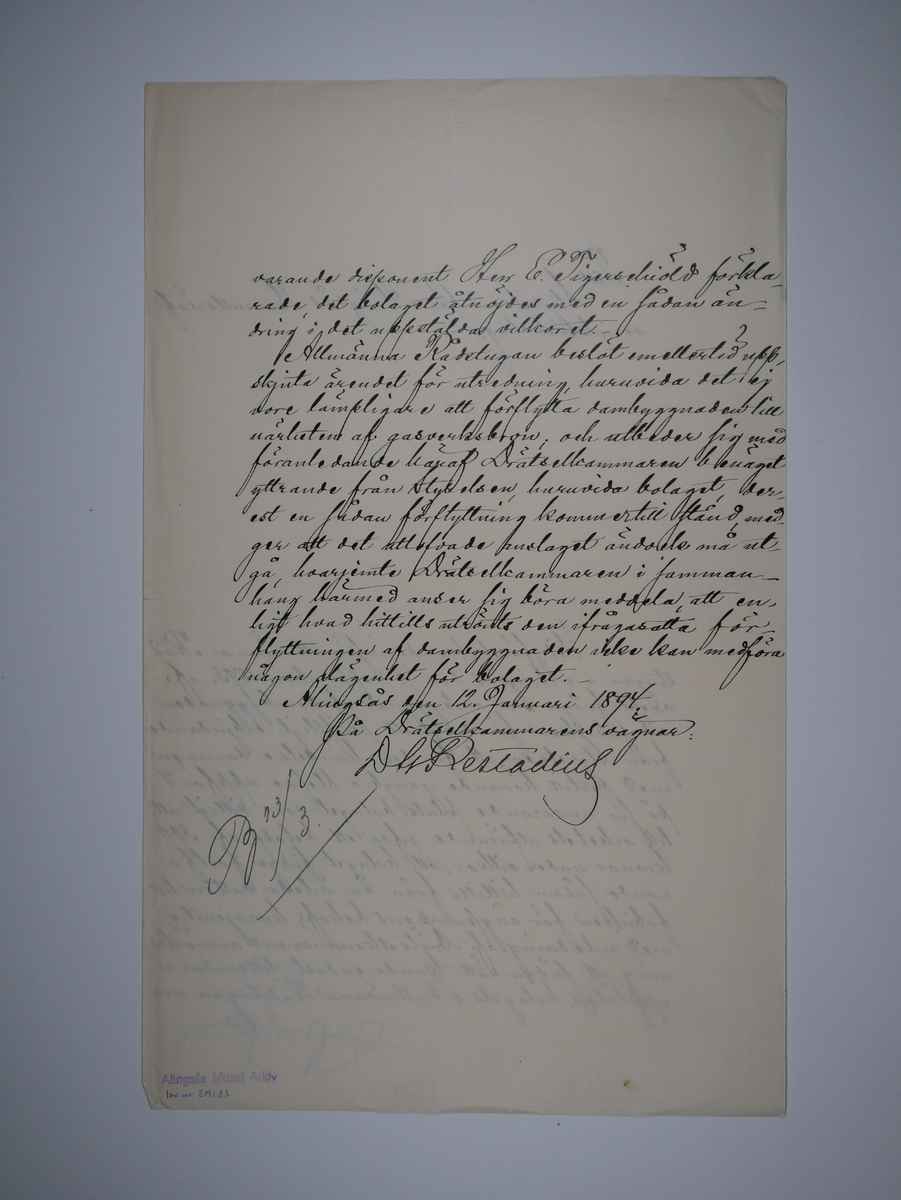 varande disponent Herr E. Tigerschiöld förkla-
rade, det bolaget åtnöjdes med en sådan än-
dring i det uppstälda vilkoret.
Allmänna Rådstugan beslöt emellertid upp-
skjuta ärendet för utredning, huruvida det ej
vore lämpligare att förflytta dambyggnaden till
närheten af gasverksbron, och utbeder sig med
föranledande häraf Drätselkammaren benäget
yttrande från styrelsen, huruvida bolaget, der-
est en sådan förflyttning kommer till stånd, med-
ger att det utlofvade anslaget ändock må ut-
gå, hvarjemte Drätselkammaren i samman-
hang härmed anser sig böra meddela, att en-
ligt hvad hittills utrönts den ifrågasatta för-
flyttningen af dambyggnaden icke kan medföra
någon olägenhet för bolaget.
Alingsås den 12. Januari 1894.
På Drätselkammarens vägnar:
D G Restadius
13/3.
Alingsås Musei Arkiv
Inv nr